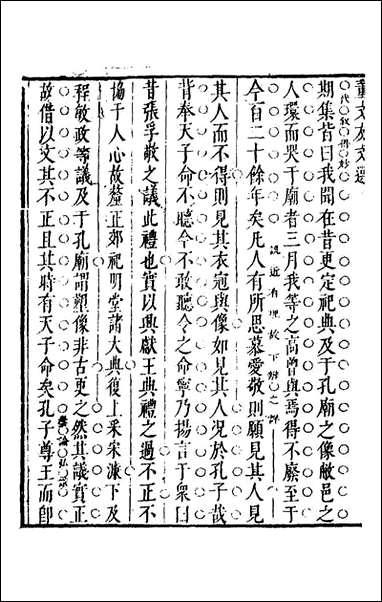 董文友文選
代叙得妙
期集皆曰我聞在昔更定祀典及于孔廟之像敝邑之
人環而哭于廟者三月我等之高曾與焉得不廢至于
説近有理故下辨之詳
今百二十餘年矣凡人有所思慕愛敬則願見其人見
其人而不得則見其衣冠與像如見其人況於孔子哉
昔奉天子命不聽今不敢聽令之命寧乃揚言于衆曰
昔張孚敬之議此禮也實以興獻王典禮之過不正不
協于人心故釐正郊祀明堂諸大典復上采宋濂下及
程敏政等議及于孔廟謂塑像非古更之然其議實正
論弘
故借以文其不正且其時有天子命矣孔子尊王而卽